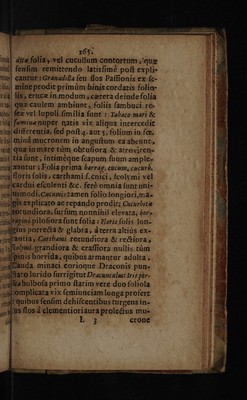 165.
folia, vel cucullum contortum, quæ
sensim remittendo latissimè post expli-
cantur: Granadilla seu flos Passionis ex se-
mine prodit primùm binis cordatis folio-
lis, erucæ in modum, cætera deinde folia
quæ caulem ambiunt, foliis sambuci ro-
seæ vel lupuli similia sunt: Tabaco mari &
fœminæ nuper natis vix aliqua intercedit
differentia, sed post 4. aut 5. folium in fœ-
mina mucronem in angustum exabeunt,
quæ in mare tùm obtusiora & atrovirent-
tia sunt, intimèque scapum suum ample-
xantur: Folia prima borrag. cucum, cucurb.
floris solis, carthami s. cnici, scolymi vel
cardui esculenti &c. ferè omnia sunt uni-
usmodi. Cucumis tamen folio longiori, ma-
gis explicato ac repando prodit; Cucurbitæ
rotundiora, sursùm nonnihil elevata, bor-
raginis pilosiora sunt folia: Floris solis lon-
gius porrecta & glabra, à terra altiùs ex-
tantia, Carthami rotundiora & rectiora,
grandiora & crassiora nullis tùm
spinis horrida, quibus armantur adulta.
Cauda minaci corioque Draconis pun-
ctato lurido surrigitur Dracunculus: Iris
bulbosa primo statim vere duo foliola
complicata vix semiunciam longa profert
quibus sensim dehiscentibus turgens in-
tus flos à clementiori aura prolectus mu-
L 3 crone